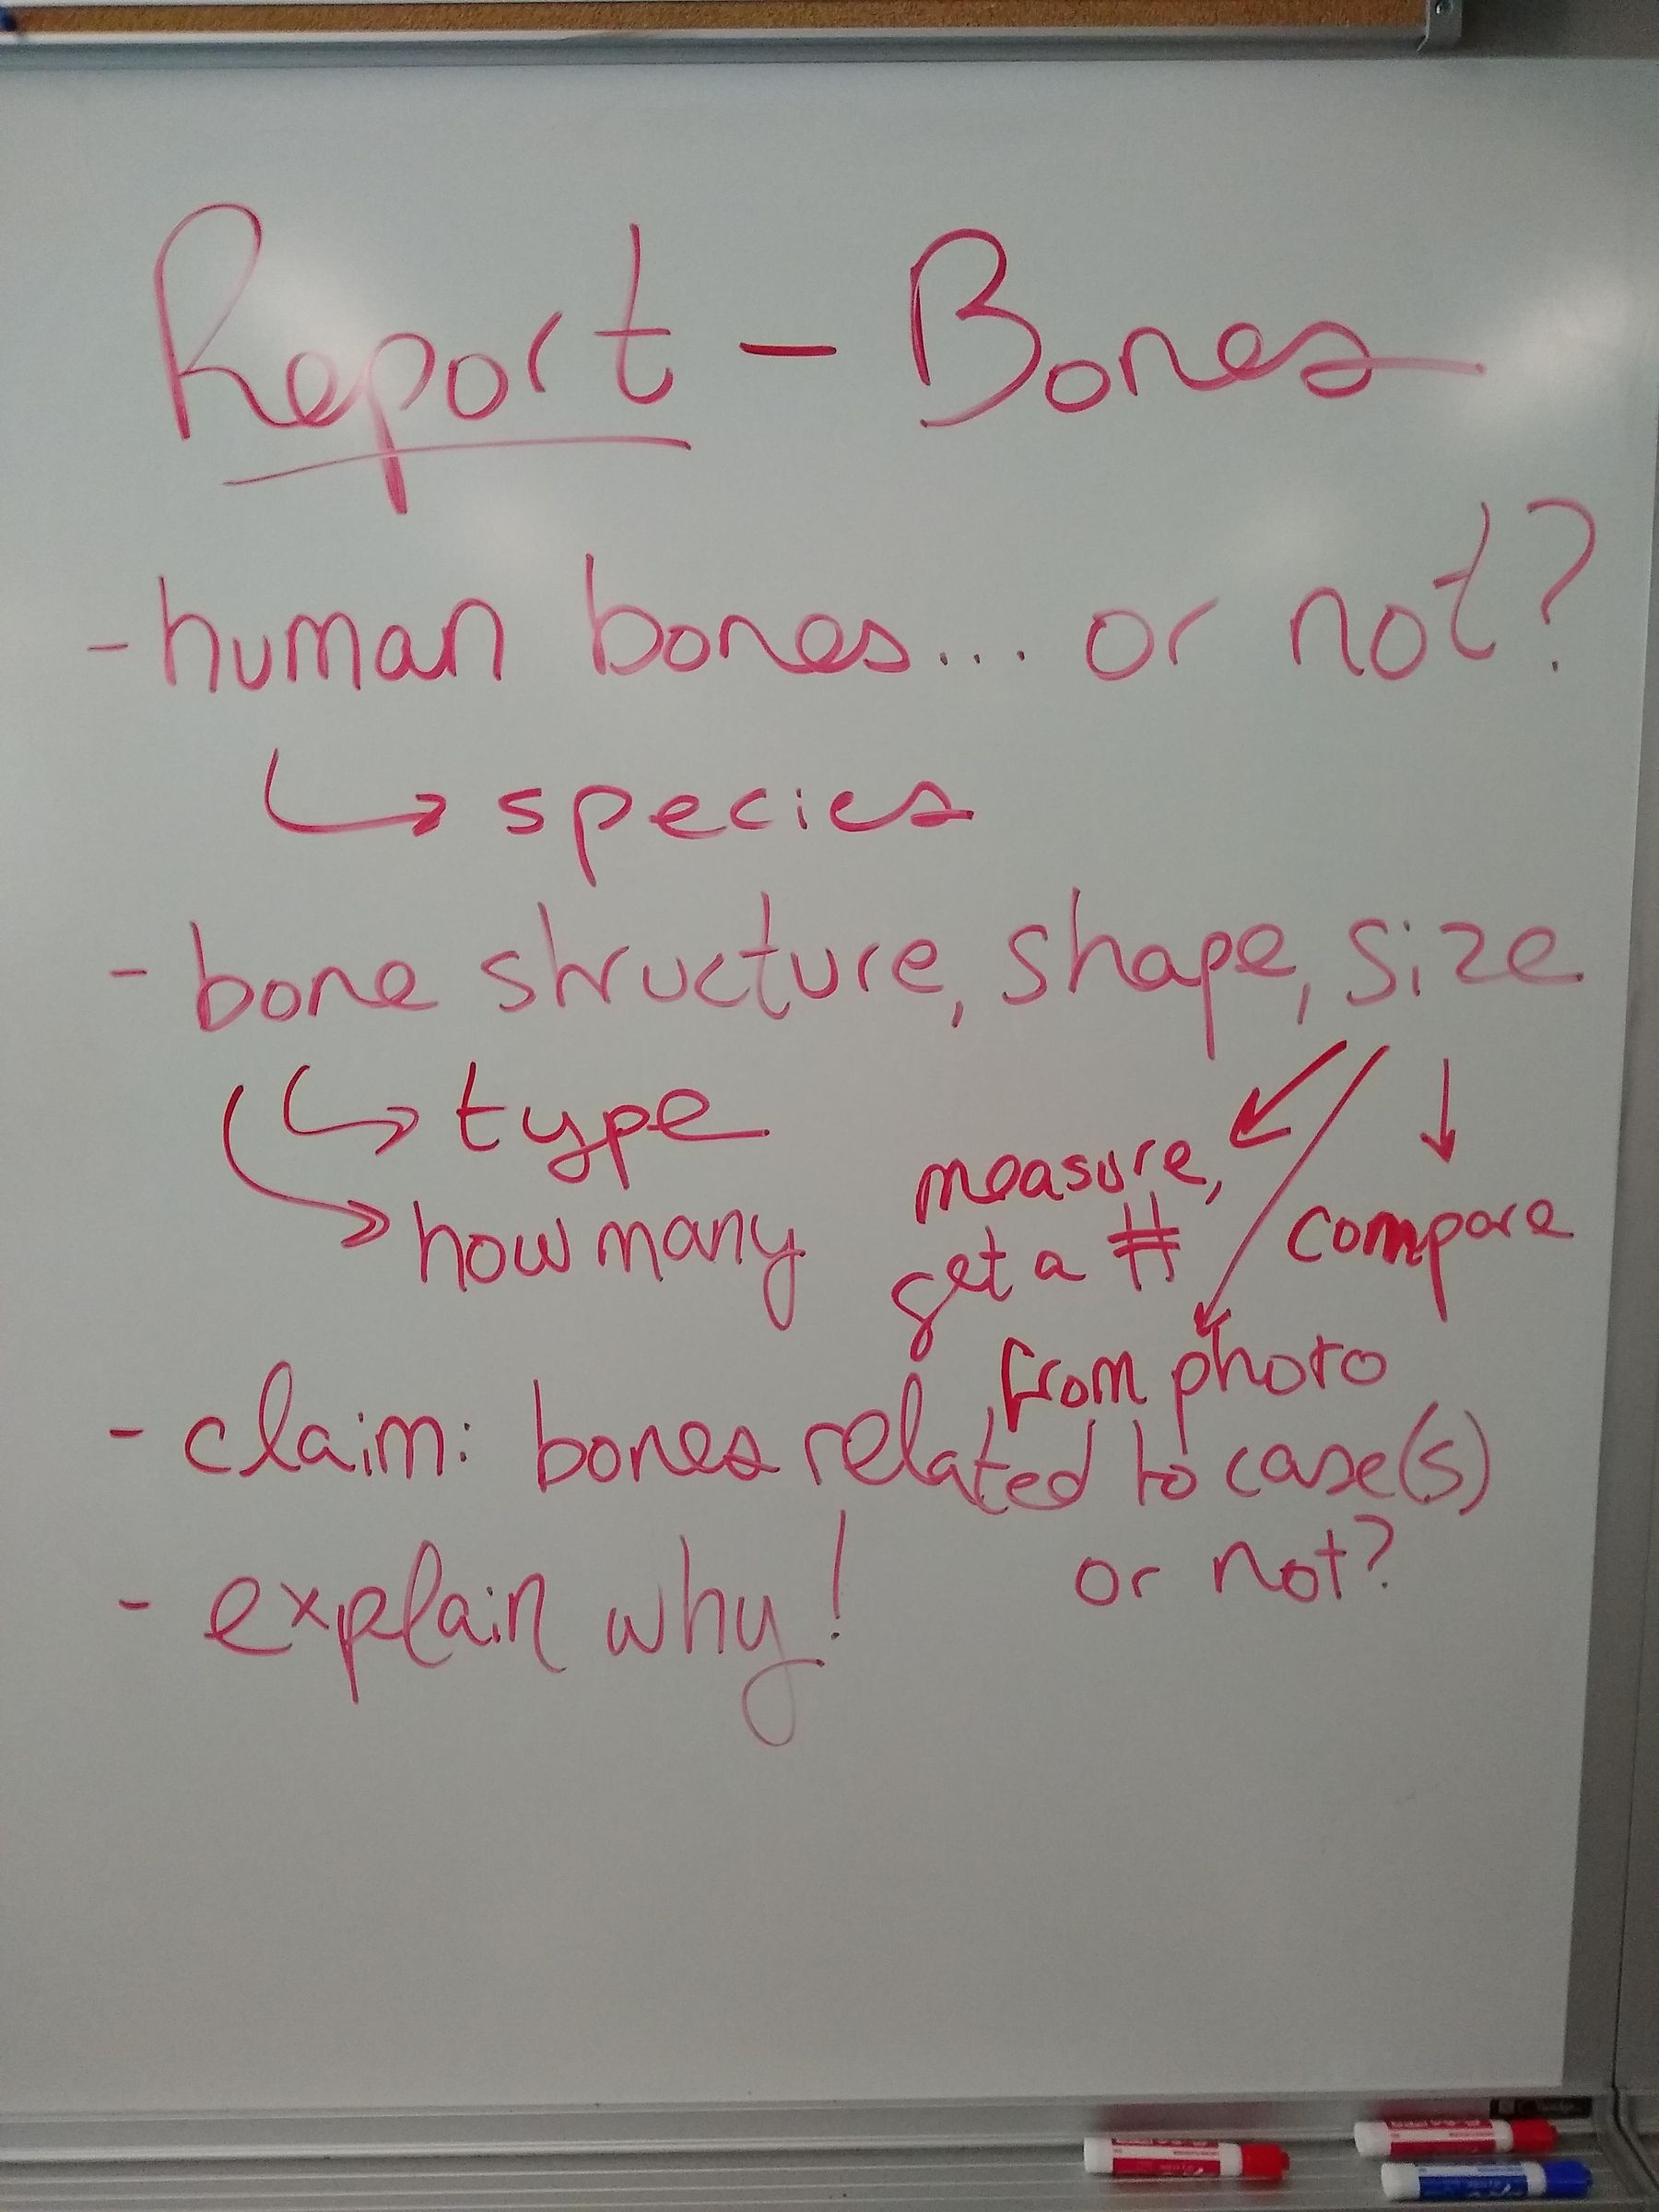 Report - Bones
- human bones... or not?
↳ species
- bone structure, shape, size
↳ type
↳ how many
measure,
get a #
compare
from photo
- claim: bones related to case(s)
or not?
- explain why!